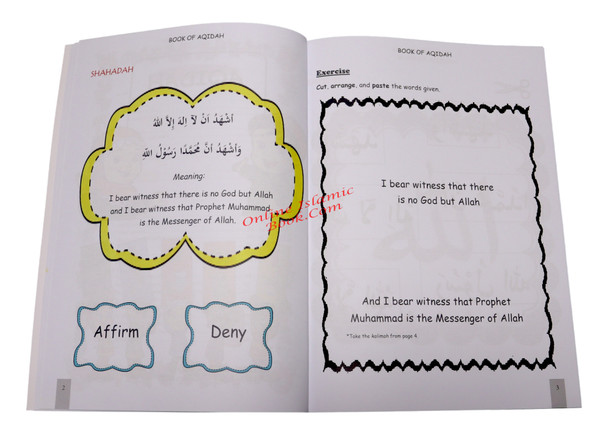 BOOK OF AQIDAH
SHAHADAH
اَشْهَدُ اَنْ لاَ اِلهَ اِلاَّ اللهُ
وَاَشْهَدُ اَنَّ مُحَمَّدًا رَسُوْلُ اللهِ
Meaning:
I bear witness that there is no God but Allah
and I bear witness that Prophet Muhammad
is the Messenger of Allah.
Affirm
Deny
2
Online Islamic
Book.Com
BOOK OF AQIDAH
Exercise
Cut, arrange, and paste the words given.
I bear witness that there
is no God but Allah
And I bear witness that Prophet
Muhammad is the Messenger of Allah
*Take the kalimah from page 4
3